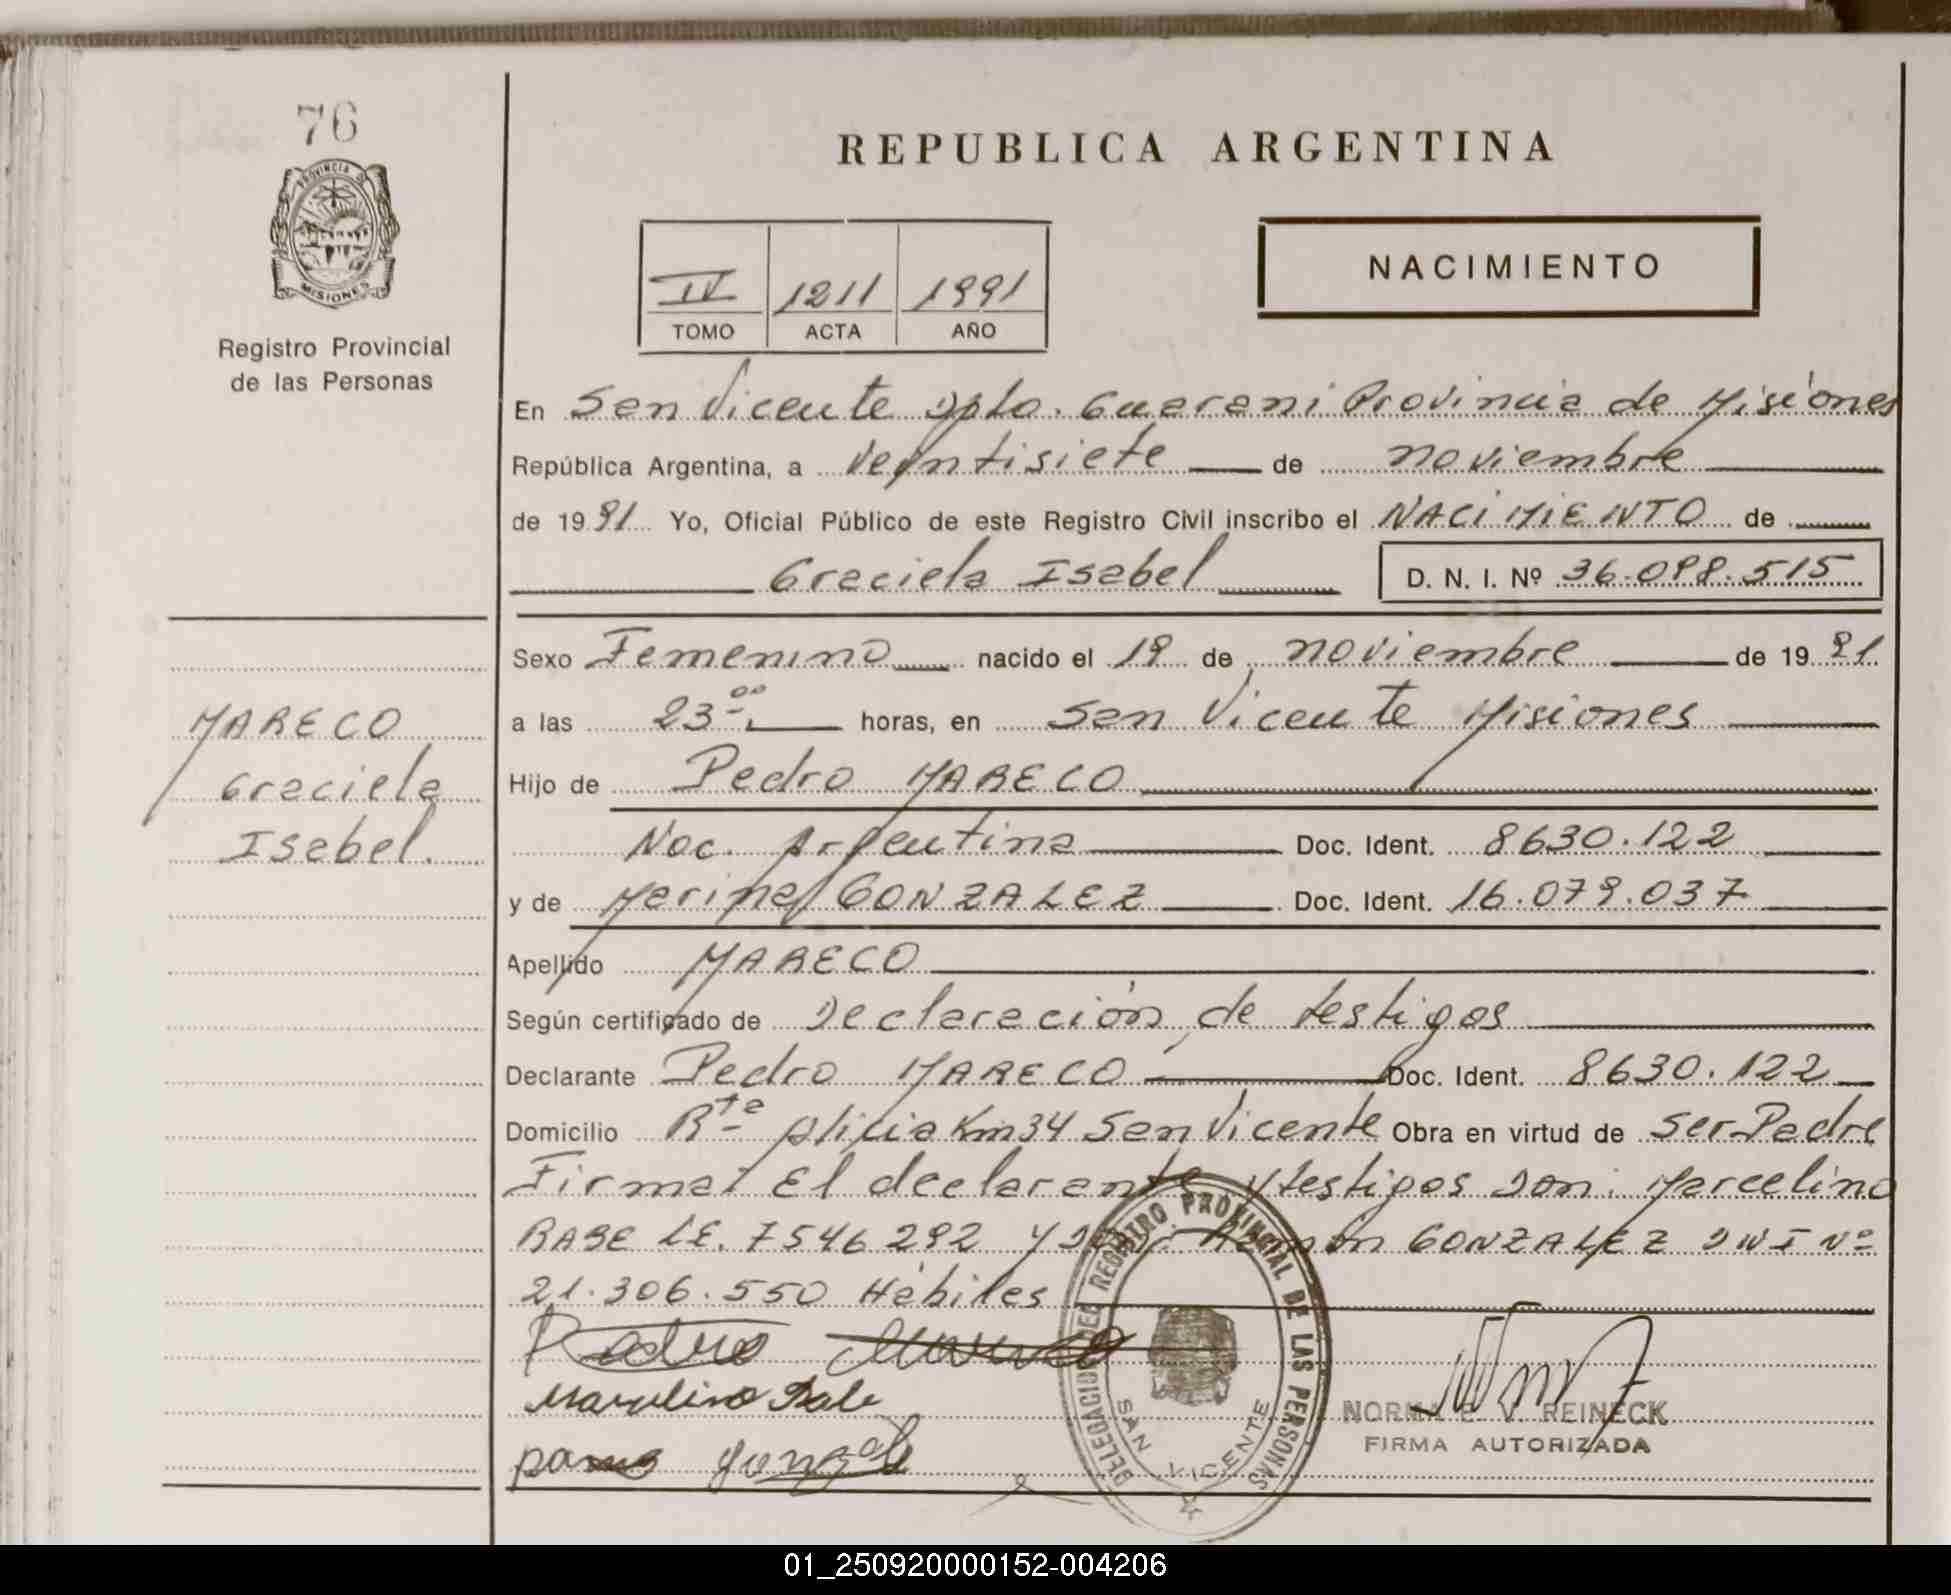 76
PROVINCIA DE
MISIONES
Registro Provincial
de las Personas
REPUBLICA ARGENTINA
IV 1211 1991
TOMO ACTA AÑO
NACIMIENTO
En San Vicente Dpto. Guarani Provincia de Misiones
República Argentina, a Veintisiete de noviembre
de 1991 Yo, Oficial Público de este Registro Civil inscribo el NACIMIENTO de
Graciela Isabel D. N. I. Nº 36.098.515
Sexo Femenino nacido el 19 de noviembre de 1991
a las 23 00 horas, en San Vicente Misiones
Hijo de Pedro MARECO
Nac. Argentina Doc. Ident. 8630.122
y de Marina GONZALEZ Doc. Ident. 16.079.037
Apellido MARECO
Según certificado de Declaración de testigos
Declarante Pedro MARECO Doc. Ident. 8630.122
Domicilio Rta Alicia Km 34 San Vicente Obra en virtud de Ser Padre
Firma El declarante y testigos Don: Marcelino
BASE LE. 7546292 y Ramón GONZALEZ DNI Nº
21.306.550 Hábiles
MARECO
Graciela
Isabel.
Pedro Mareco
Marcelino Base
NORMA E. V. REINECK
FIRMA AUTORIZADA
DELEGACION DEL REGISTRO PROVINCIAL DE LAS PERSONAS
SAN VICENTE
01_250920000152-004206